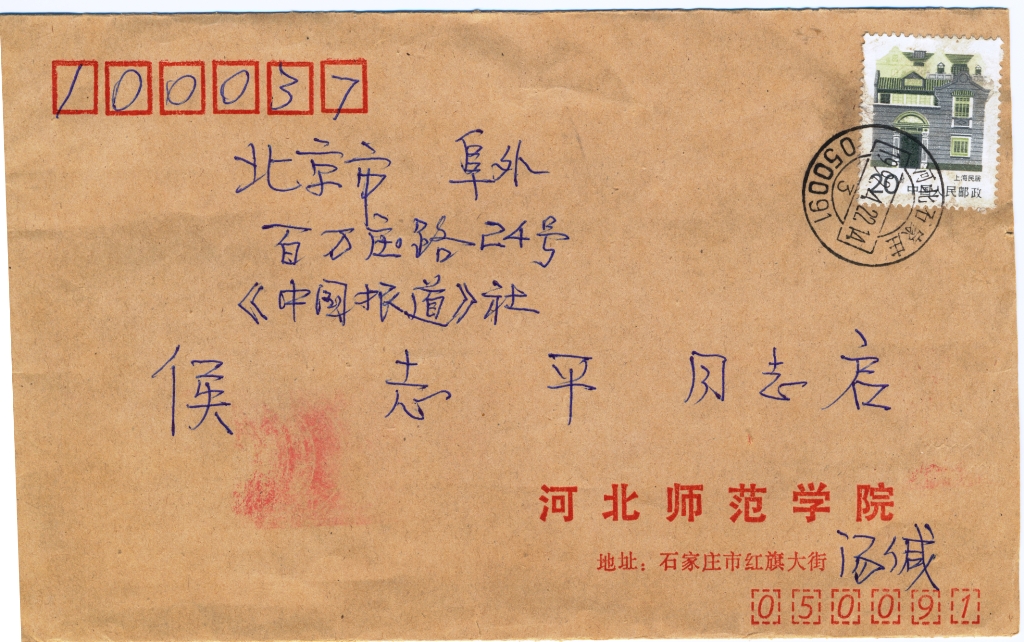 100037
北京市 阜外
百万庄路24号
《中国报道》社
侯志平同志启
上海民居
20
中国人民邮政
河北石家庄
050091
河北师范学院
地址：石家庄市红旗大街 汤缄
050091